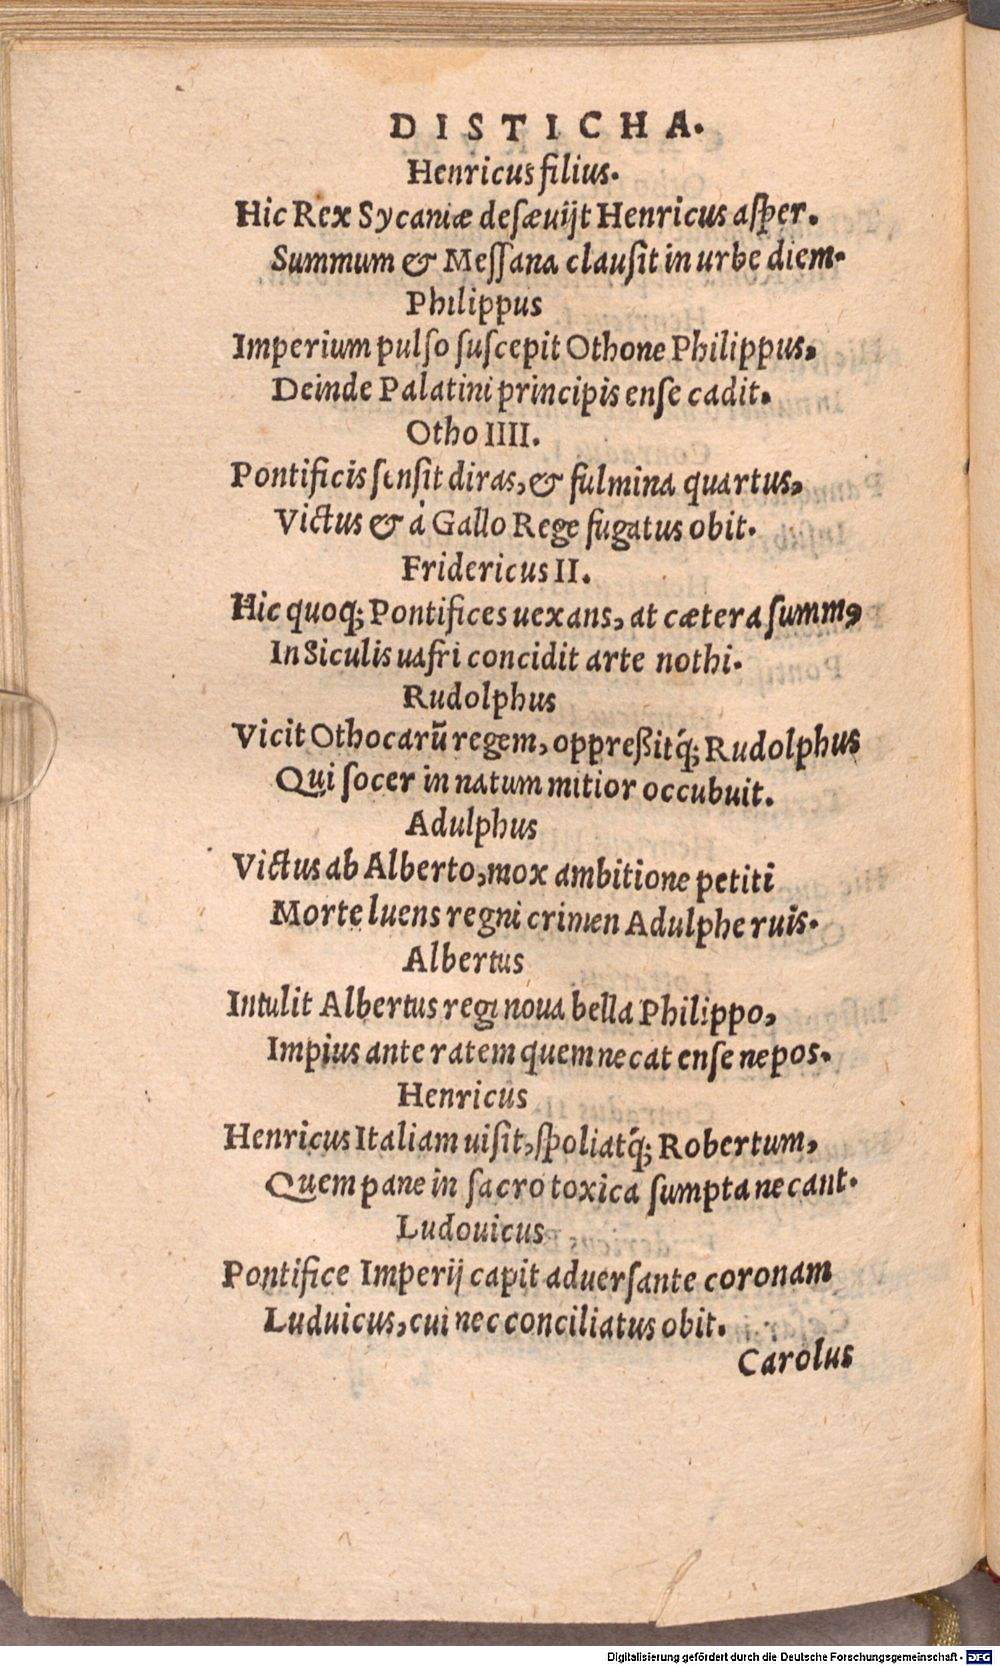 DISTICHA.
Henricus filius.
Hic Rex Sycaniæ desæuijt Henricus asper.
Summum & Messana clausit in urbe diem.
Philippus
Imperium pulso suscepit Othone Philippus,
Deinde Palatini principis ense cadit.
Otho IIII.
Pontificis sensit diras, & fulmina quartus,
Victus & à Gallo Rege fugatus obit.
Fridericus II.
Hic quoq; Pontifices uexans, at cætera summꝰ
In Siculis uafri concidit arte nothi.
Rudolphus
Vicit Othocarū regem, oppreßitq́; Rudolphus
Qui socer in natum mitior occubuit.
Adulphus
Victus ab Alberto, mox ambitione petiti
Morte luens regni crimen Adulphe ruis.
Albertus
Intulit Albertus regi noua bella Philippo,
Impius ante ratem quem necat ense nepos.
Henricus
Henricus Italiam uisit, spoliatq́; Robertum,
Quem pane in sacro toxica sumpta necant.
Ludouicus
Pontifice Imperij capit aduersante coronam
Luduicus, cui nec conciliatus obit.
Carolus
Digitalisierung gefördert durch die Deutsche Forschungsgemeinschaft - DFG